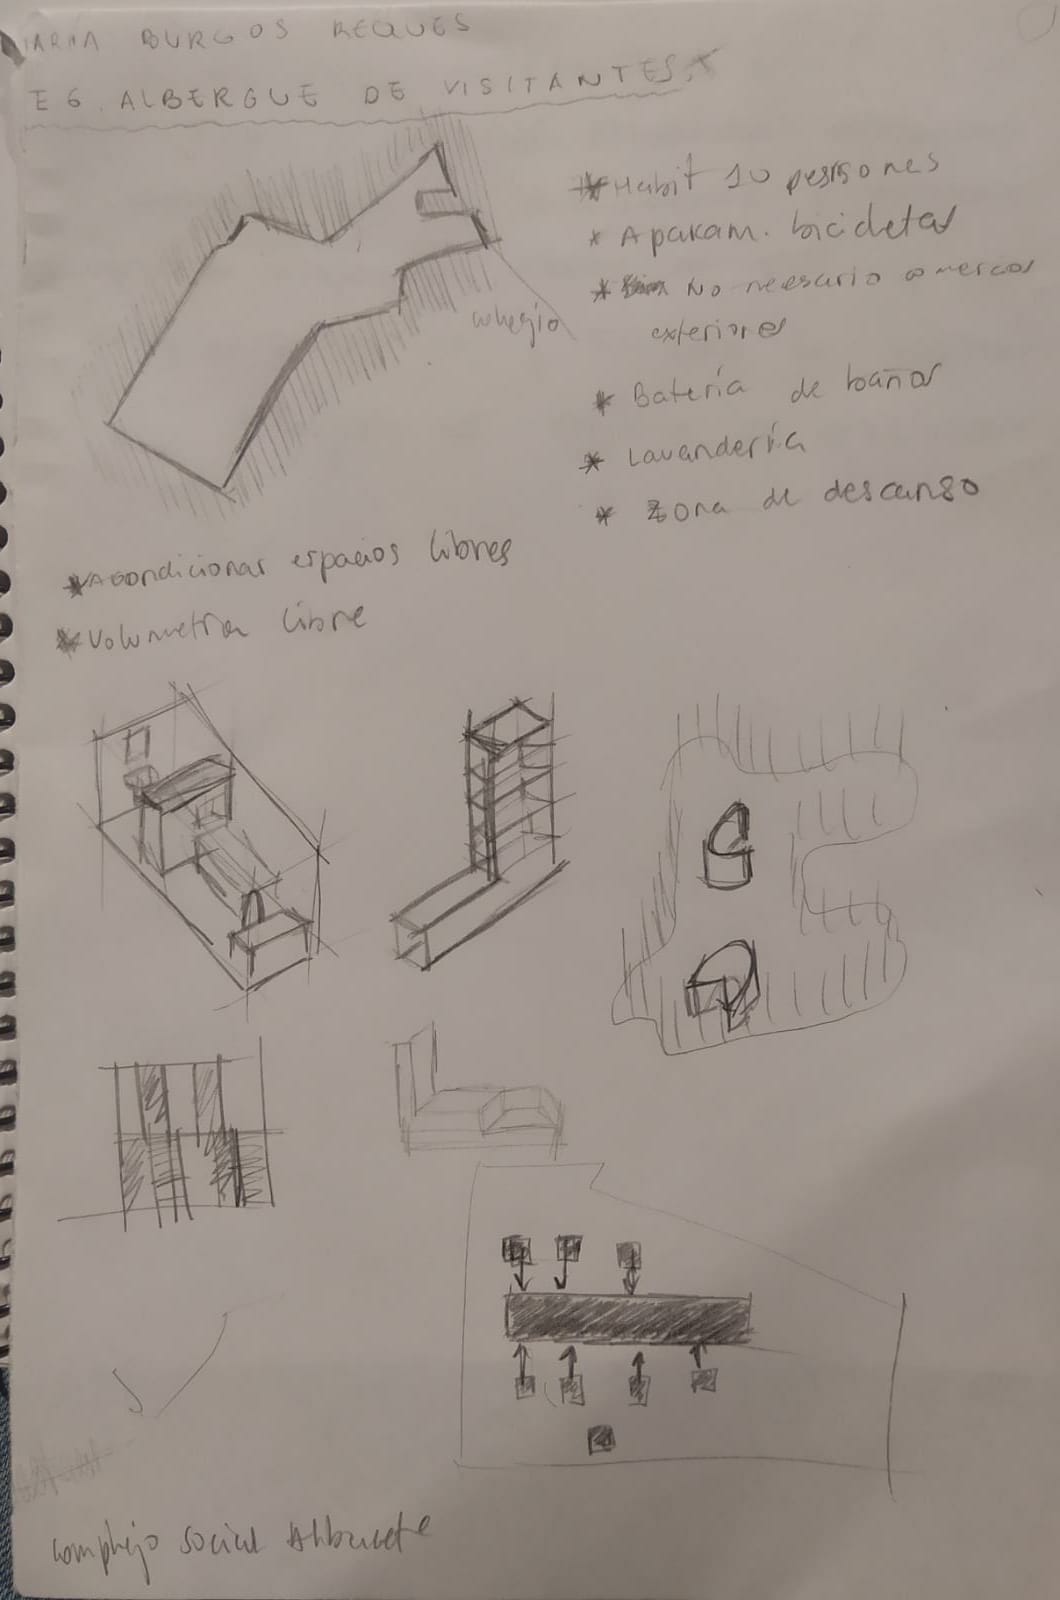 MARIA BURGOS REQUES
E6. ALBERGUE DE VISITANTES.
* Habit 10 personas
* Aparcam. bicicletas
* No necesario comercos
exteriores
* Batería de baños
* Lavandería
* Zona de descanso
colegio
* Acondicionar espacios libres
* Volumetría libre
complejo social Albacete